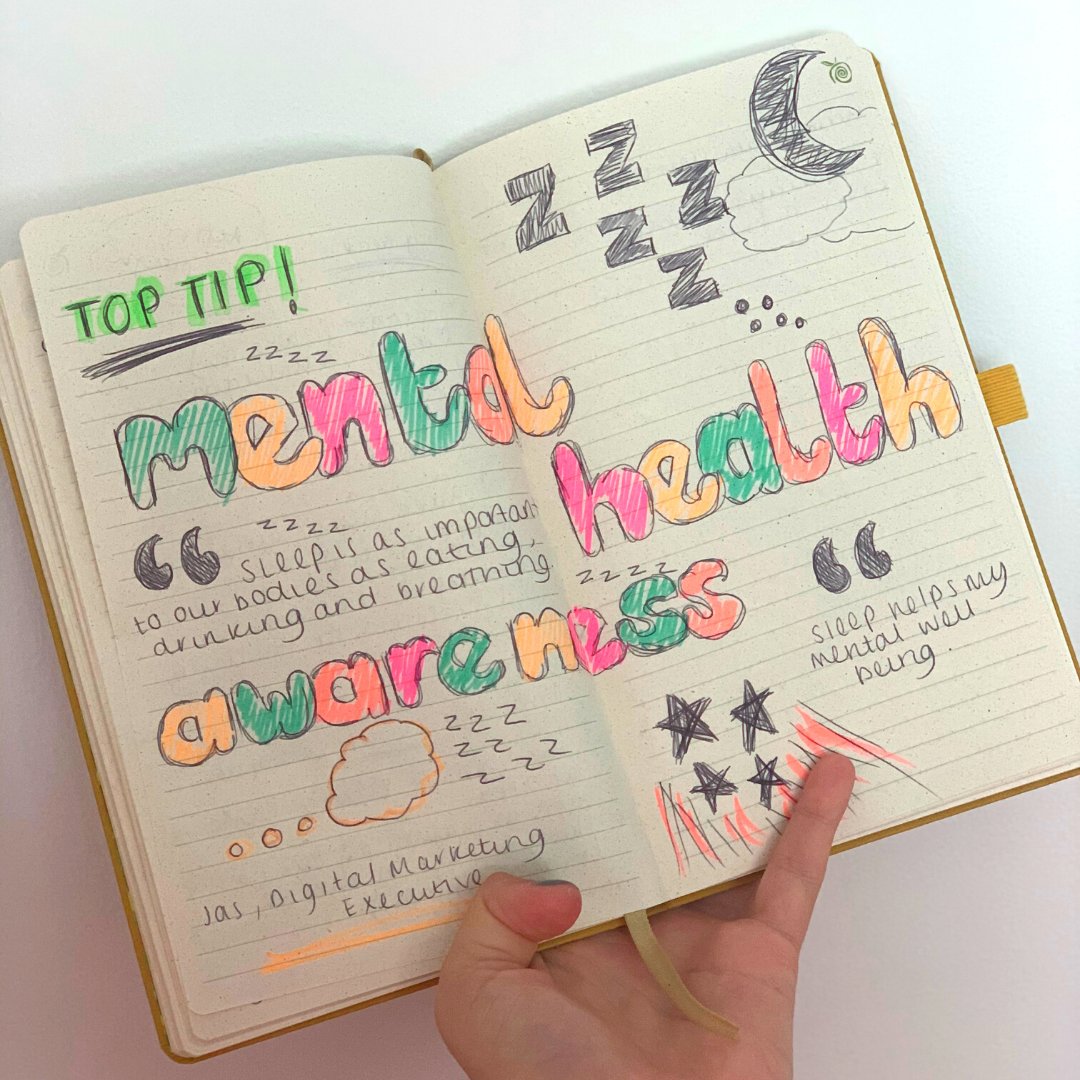 TOP TIP!
Z Z Z
Z
Z
z z z z
mental health
z z z z
“ Sleep is as important
to our bodies as eating,
drinking and breathing.
z z z z
awareness
“
Sleep helps my
mental well
being.
z z z
z z z
z z z
Jas, Digital Marketing
Executive